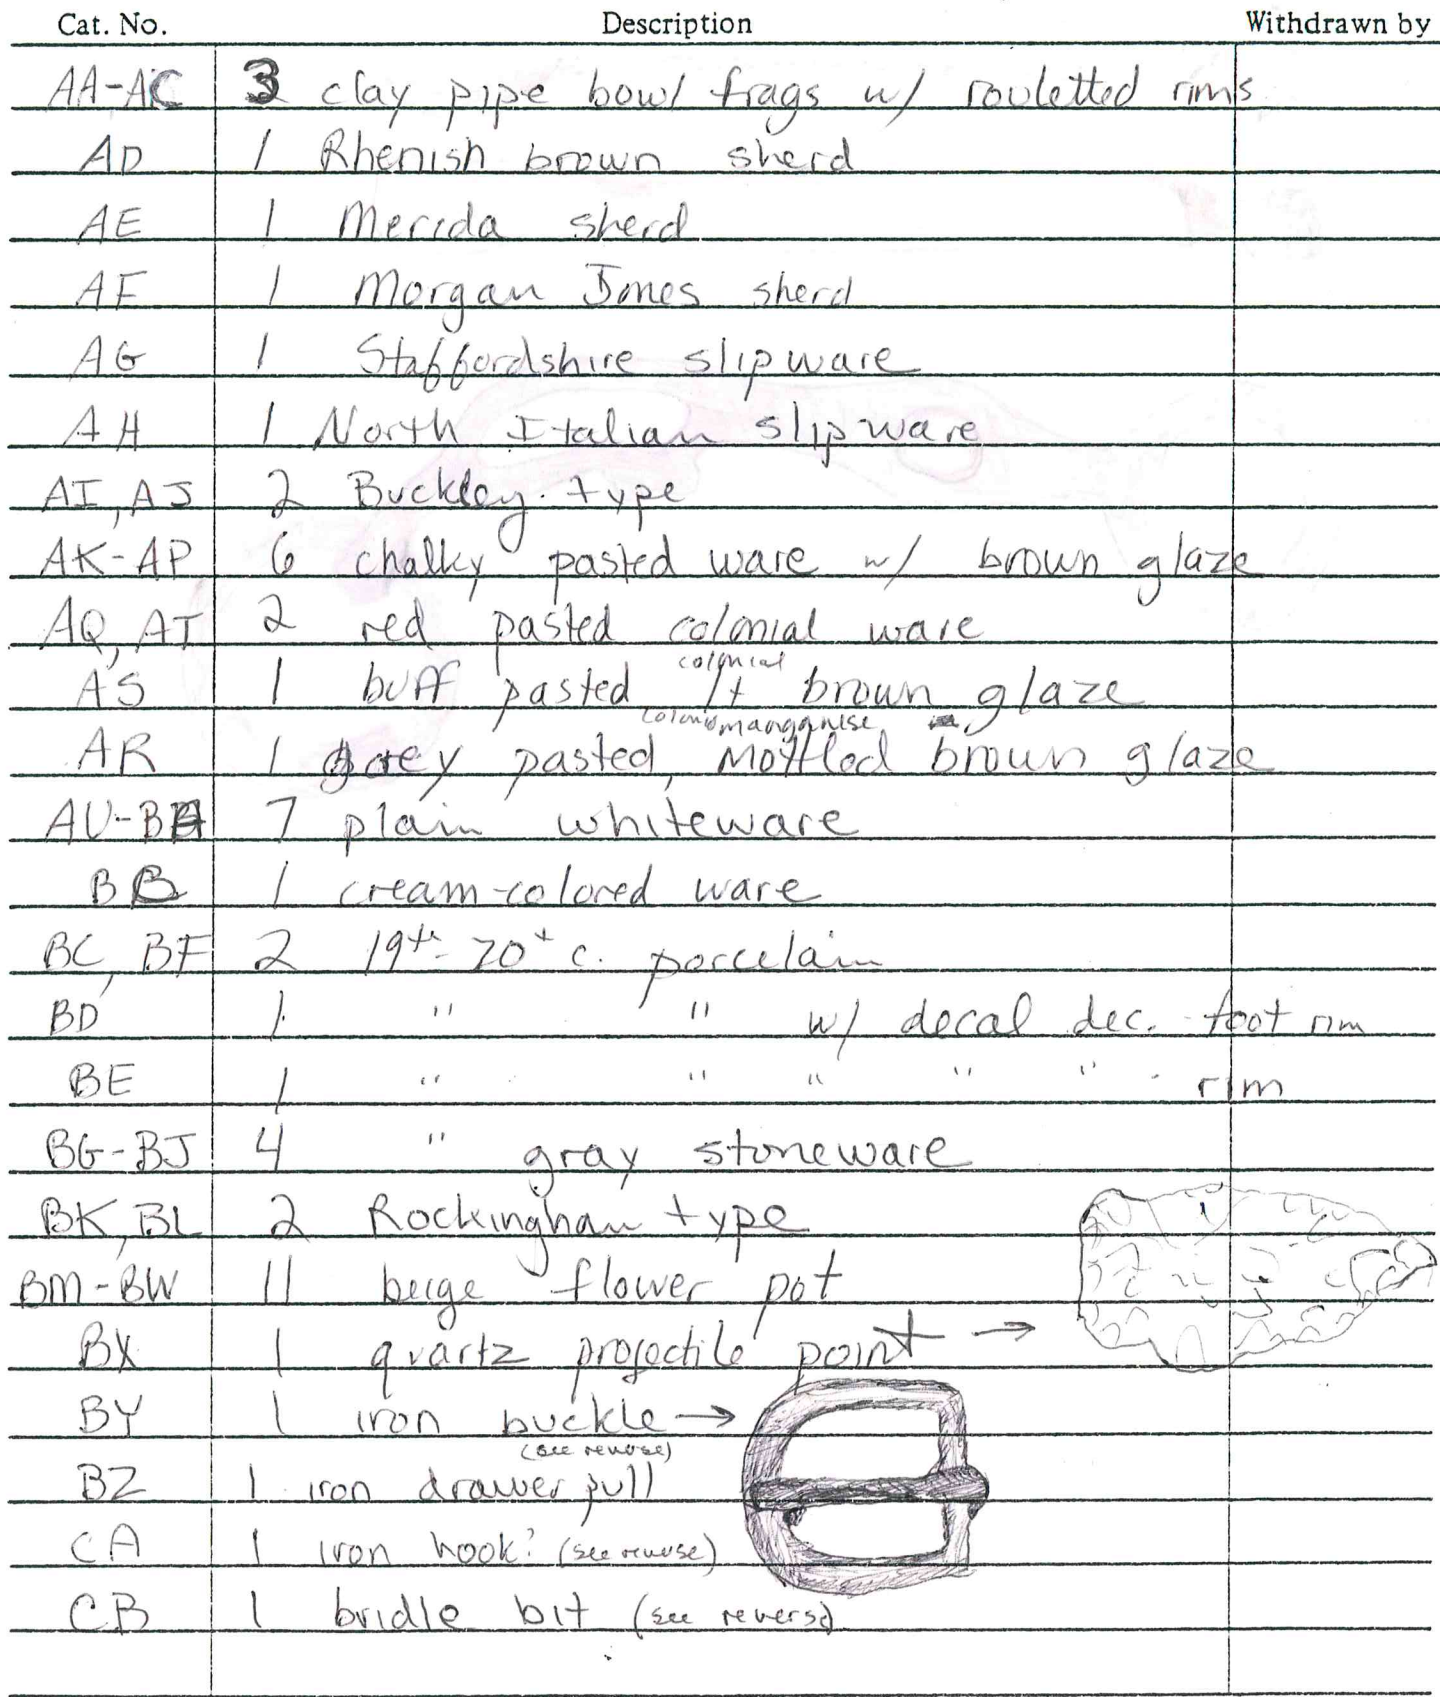 Cat. No. Description Withdrawn by
AA-AC 3 clay pipe bowl frags w/ rouletted rims
AD 1 Rhenish brown sherd
AE 1 Merida sherd
AF 1 Morgan Jones sherd
AG 1 Staffordshire slipware
AH 1 North Italian slipware
AI, AJ 2 Buckley type
AK-AP 6 chalky pasted ware w/ brown glaze
AQ, AT 2 red pasted colonial ware
colonial
AS 1 buff pasted lt brown glaze
manganise
AR 1 grey pasted, mottled brown glaze
AU-BA 7 plain whiteware
BB 1 cream-colored ware
BC, BF 2 19th-20th c. porcelain
BD 1 " " w/ decal dec. foot rim
BE 1 " " " " " rim
BG-BJ 4 " gray stoneware
BK, BL 2 Rockingham type
BM-BW 11 beige flower pot
BX 1 quartz projectile point →
BY 1 iron buckle →
(see reverse)
BZ 1 iron drawer pull
CA 1 iron hook? (see reverse)
CB 1 bridle bit (see reverse)